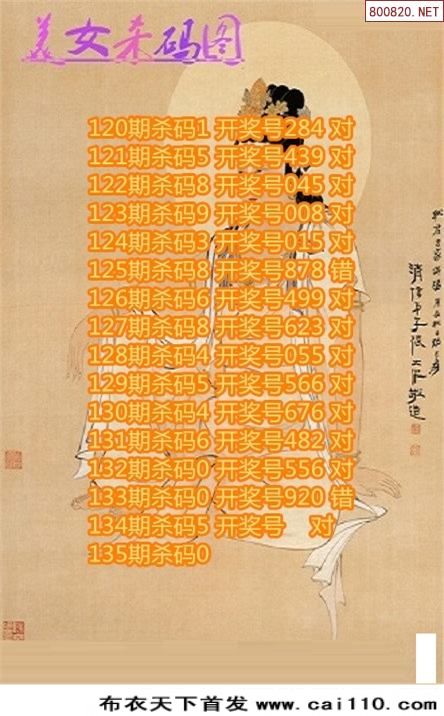 800820.NET
美女杀码图
120期杀码1 开奖号284 对
121期杀码5 开奖号439 对
122期杀码8 开奖号045 对
123期杀码9 开奖号008 对
124期杀码3 开奖号015 对
125期杀码8 开奖号878 错
126期杀码6 开奖号499 对
127期杀码8 开奖号623 对
128期杀码4 开奖号055 对
129期杀码5 开奖号566 对
130期杀码4 开奖号676 对
131期杀码6 开奖号482 对
132期杀码0 开奖号556 对
133期杀码0 开奖号920 错
134期杀码5 开奖号 对
135期杀码0
布衣天下首发 www.cai110.com